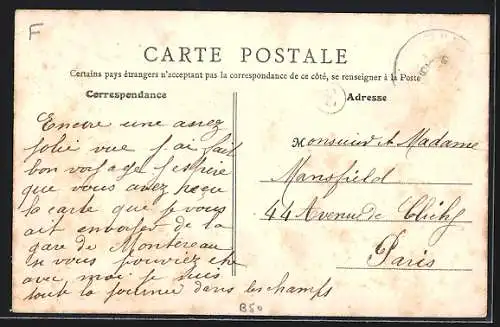 F
CARTE POSTALE
Certains pays étrangers n'acceptant pas la correspondance de ce côté, se renseigner à la Poste
Correspondance
Encore une assez
jolie vue j'ai fait
bon voyage j'espère
que vous avez reçu
la carte que je vous
ait envoyée de la
gare de Montereau
si vous pouviez être
avec moi je suis
tout la journée dans les champs
Adresse
Monsieur et Madame
Mansfield
44 Avenue de Clichy
Paris
B50